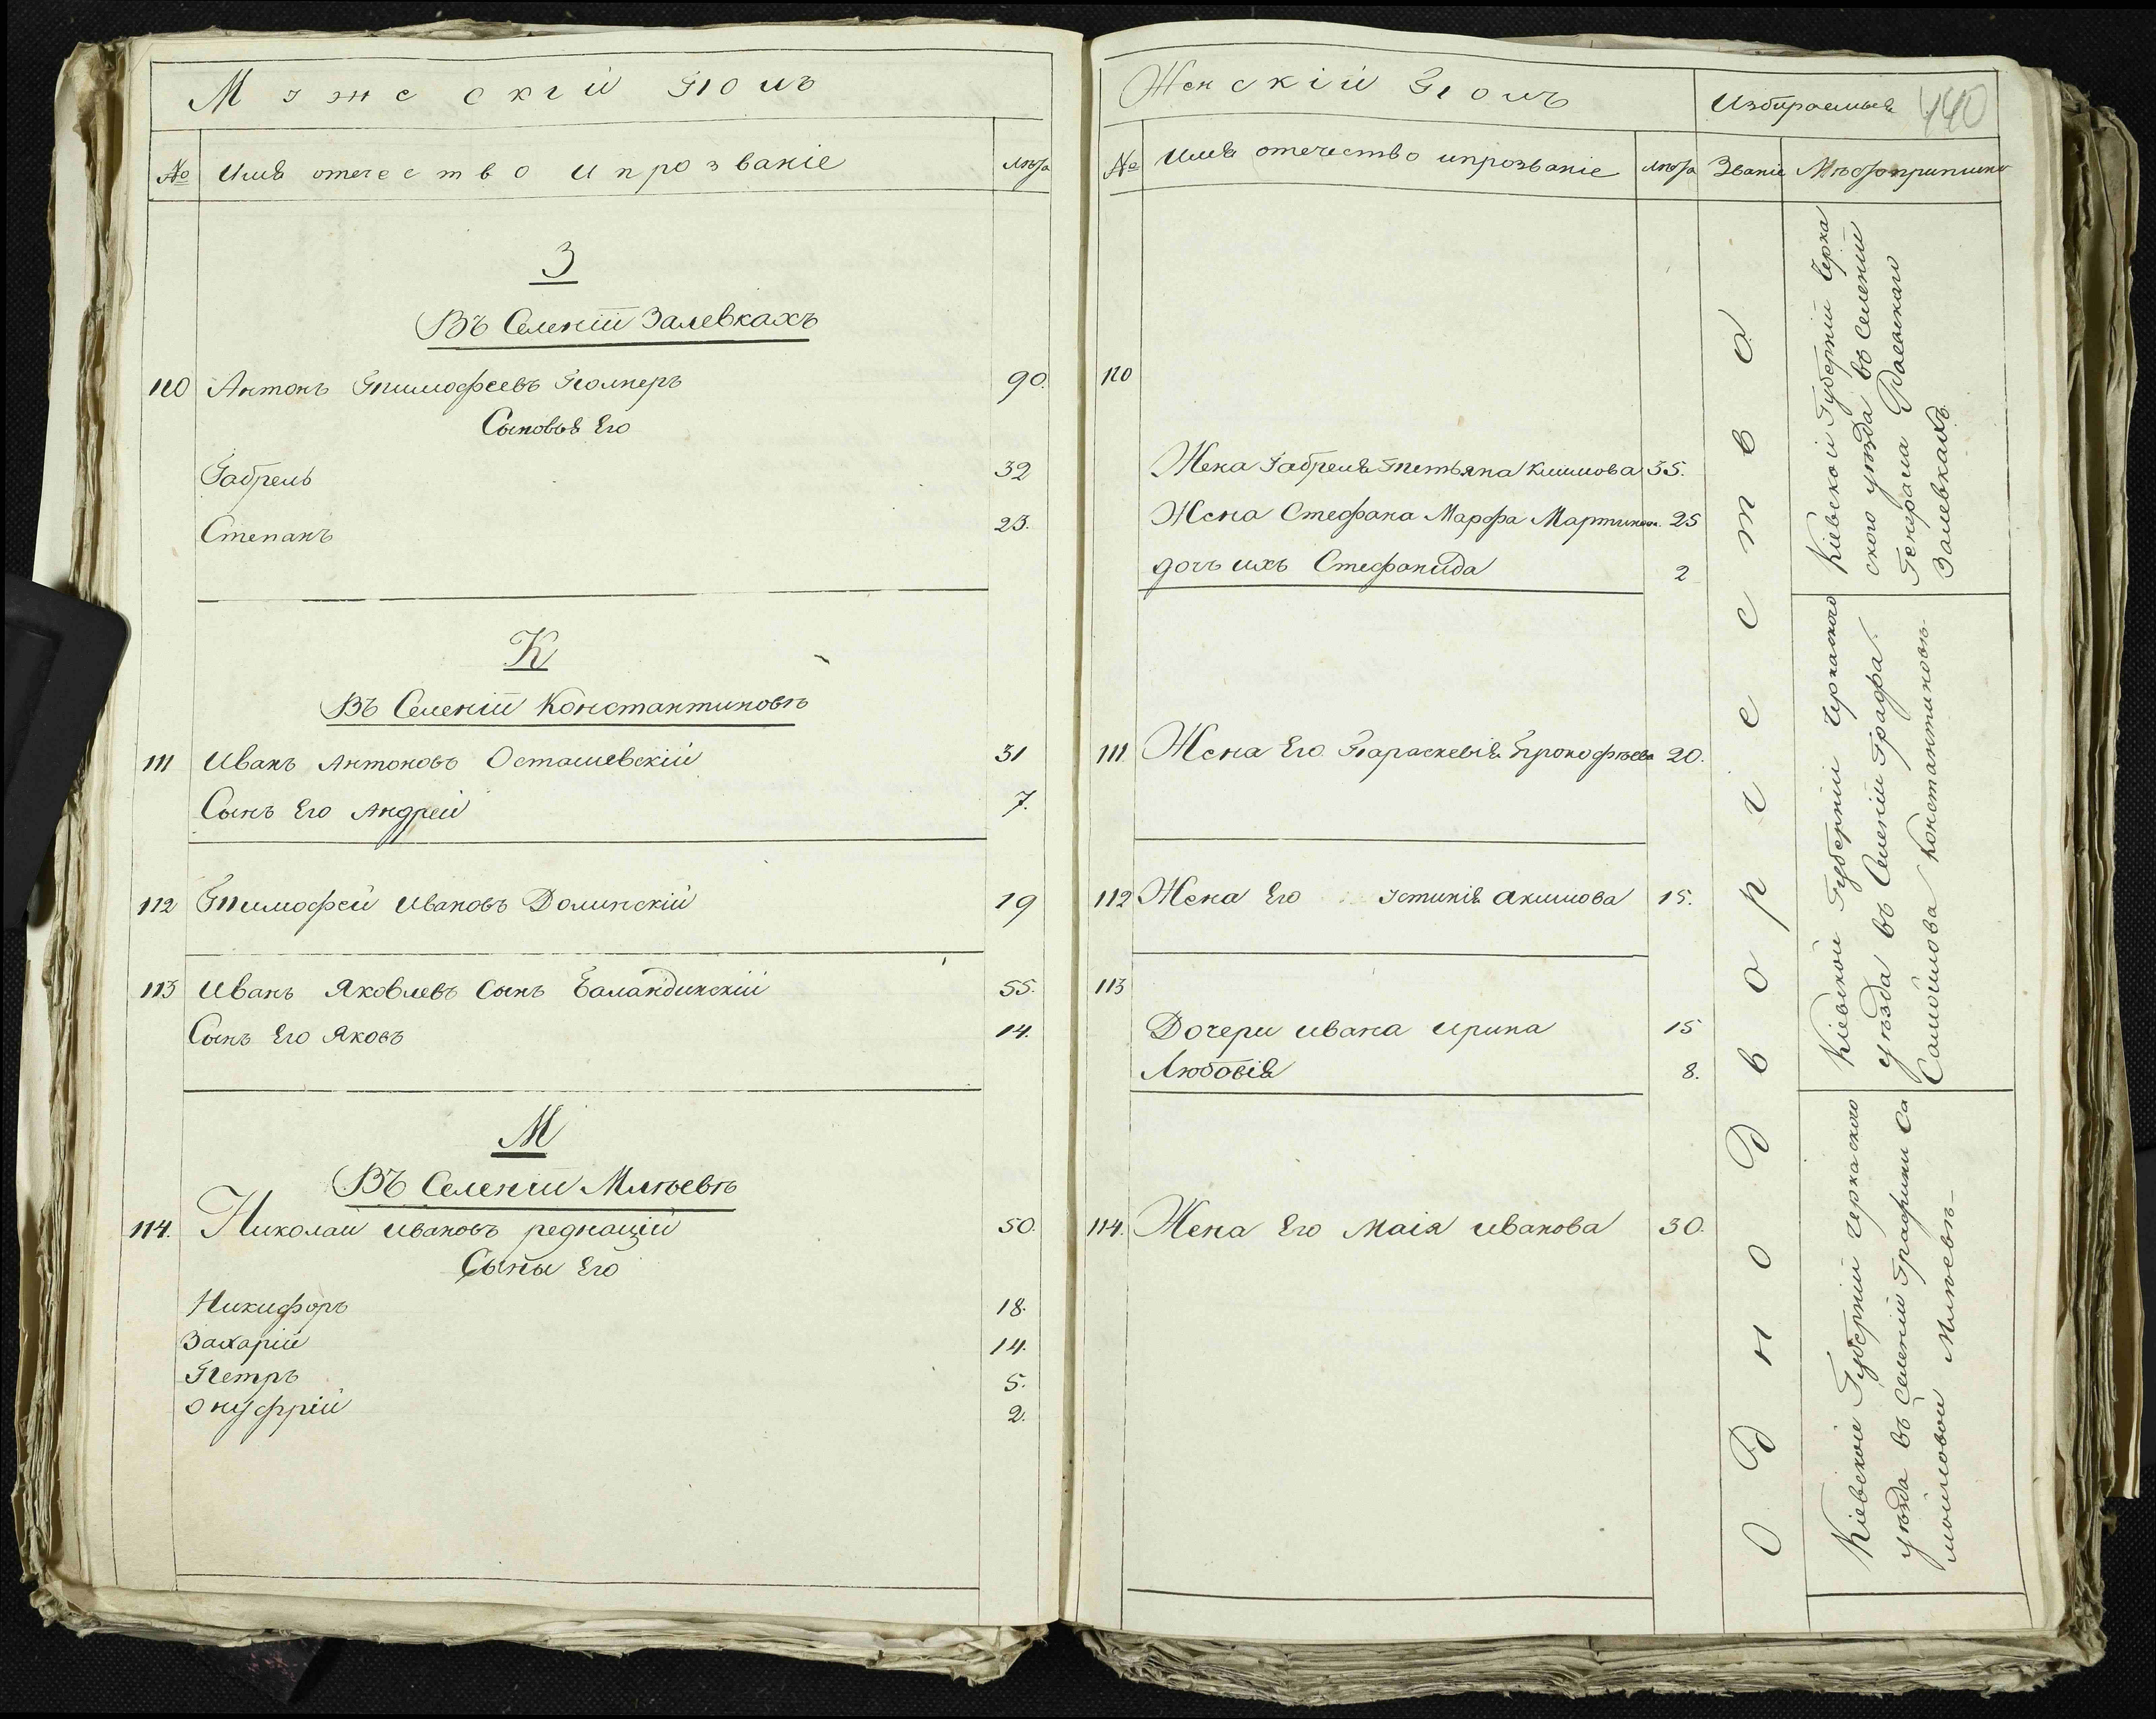 Мужескій Полъ
№ Имя отечество и прозваніе лѣта
З
Въ Селеніи Залевкахъ
110 Антонъ Тимофеевъ 90.
Сыновья Его
Габрель 32
Степанъ 23.
К
Въ Селеніи Константиновѣ
111 Иванъ Антоновъ Осташевскій 31
Сынъ Его Андрей 7.
112 Тимофей Ивановъ Долинскій 19
113 Иванъ Яковлевъ Сынъ Баландинскій 55.
Сынъ Его Яковъ 14.
М
Въ Селеніи Млѣевѣ
114. Николай Ивановъ 50.
Сыны Его
Никифоръ 18.
Захарій 14.
Петръ 5.
Онуфрій 2.
Женскій Полъ
Избираемыя
440
№ Имя отечество ипрозваніе лѣта Званіе Мѣсто приписки
110
Жена Габреля Тетьяна Климова 35.
Жена Стефана Марфа Мартинова 25
дочь ихъ Стефанида 2
111 Жена Его Параскевія Прокофьева 20.
112 Жена Его Устинія Акимова 15.
113
Дочери Ивана Ирина 15
Любовія 8.
114. Жена Его Маія Иванова 30.
Однодворчество
Кіевской Губерніи Черка
ского уезда въ Селеніи
Генерала Раевскаго
Залевкахъ
Кіевской Губерніи Черкаского
уезда въ Селеніи Графа
Самойлова Константиновѣ.
Кіевской Губерніи Черкаского
уезда въ Селеніи Графини Са
мойловой Млѣевѣ